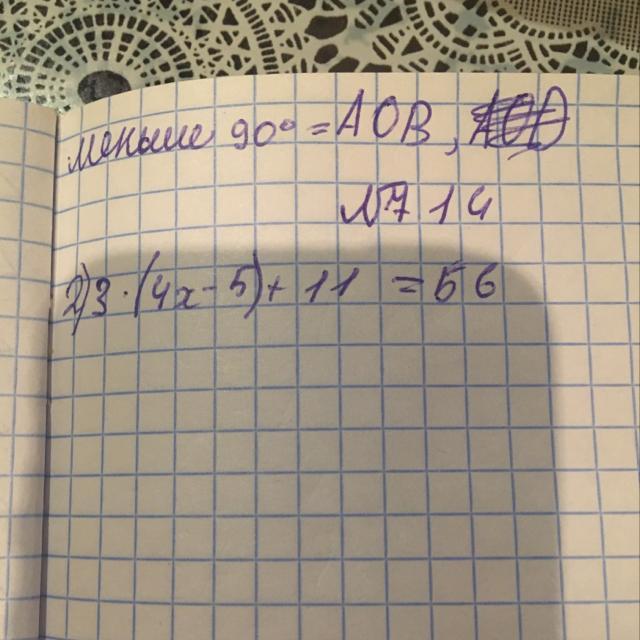 меньше 90° = АОВ,
№714
2) 3·(4x-5)+ 11 = 56